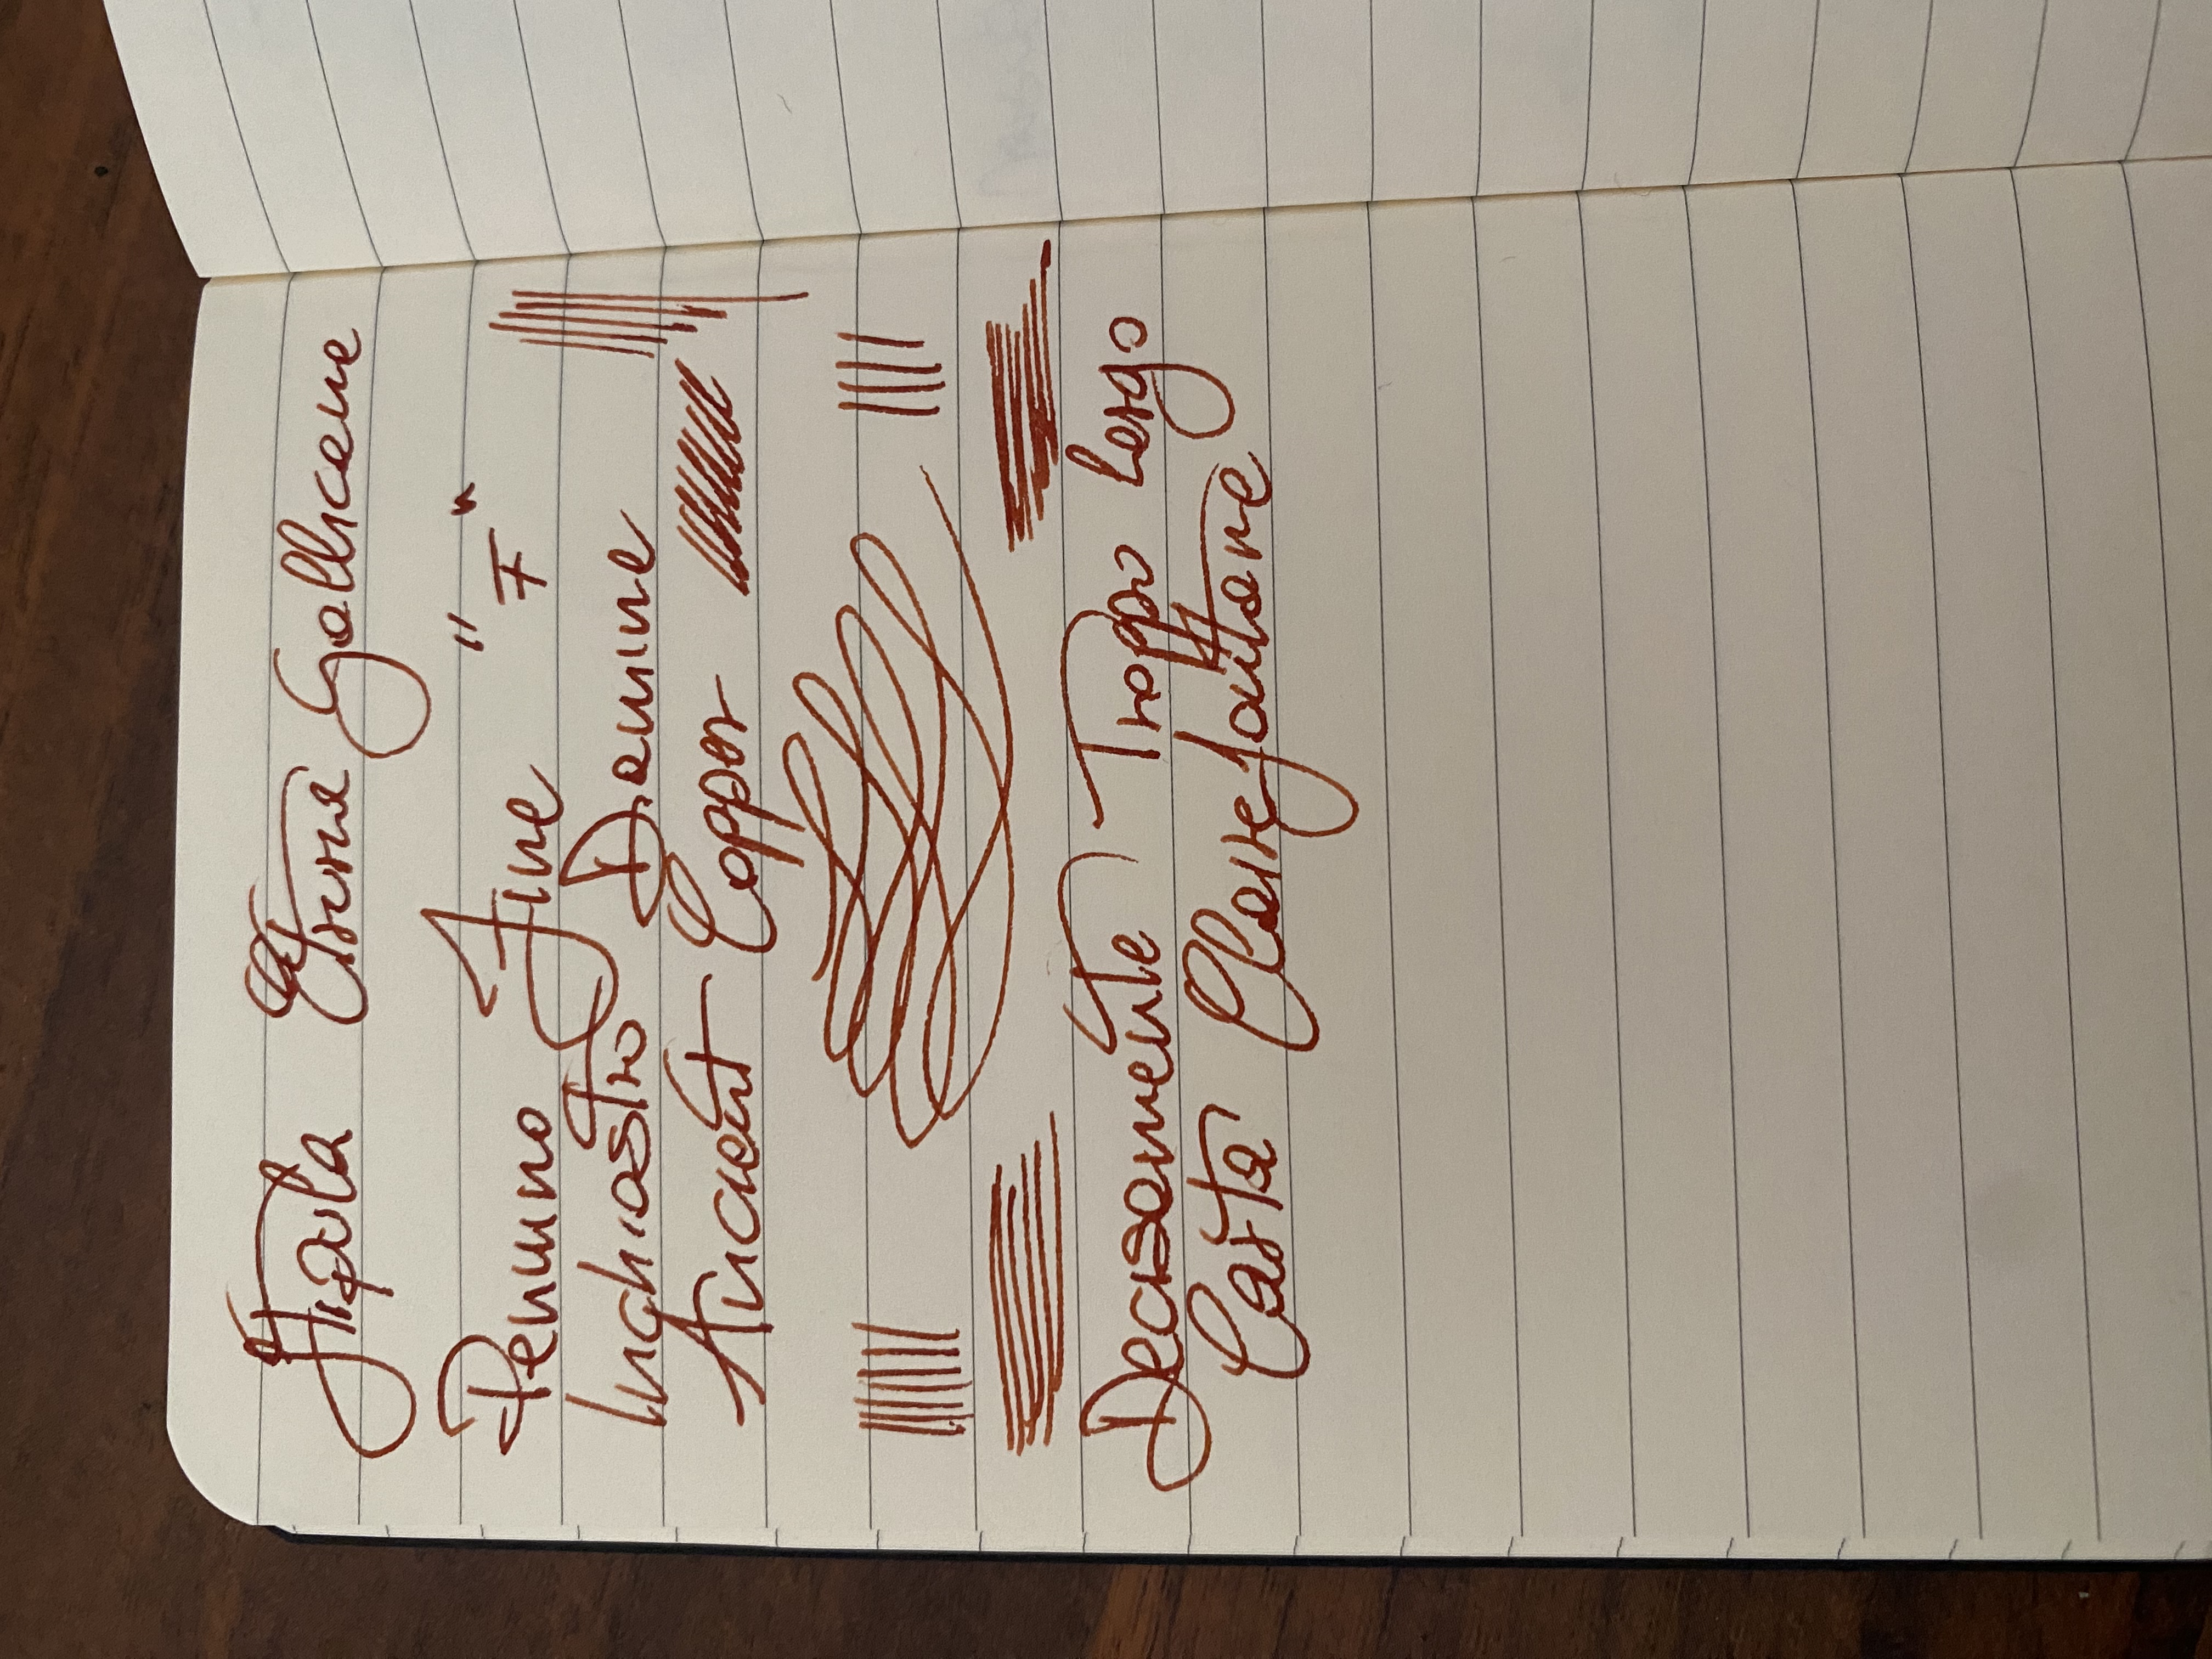 Stipula Etruria Gallicana
Pennino Fine "F"
Inchiostro Diamine
Ancient Copper
Decisamente Troppo Largo
Carta Clairefontaine